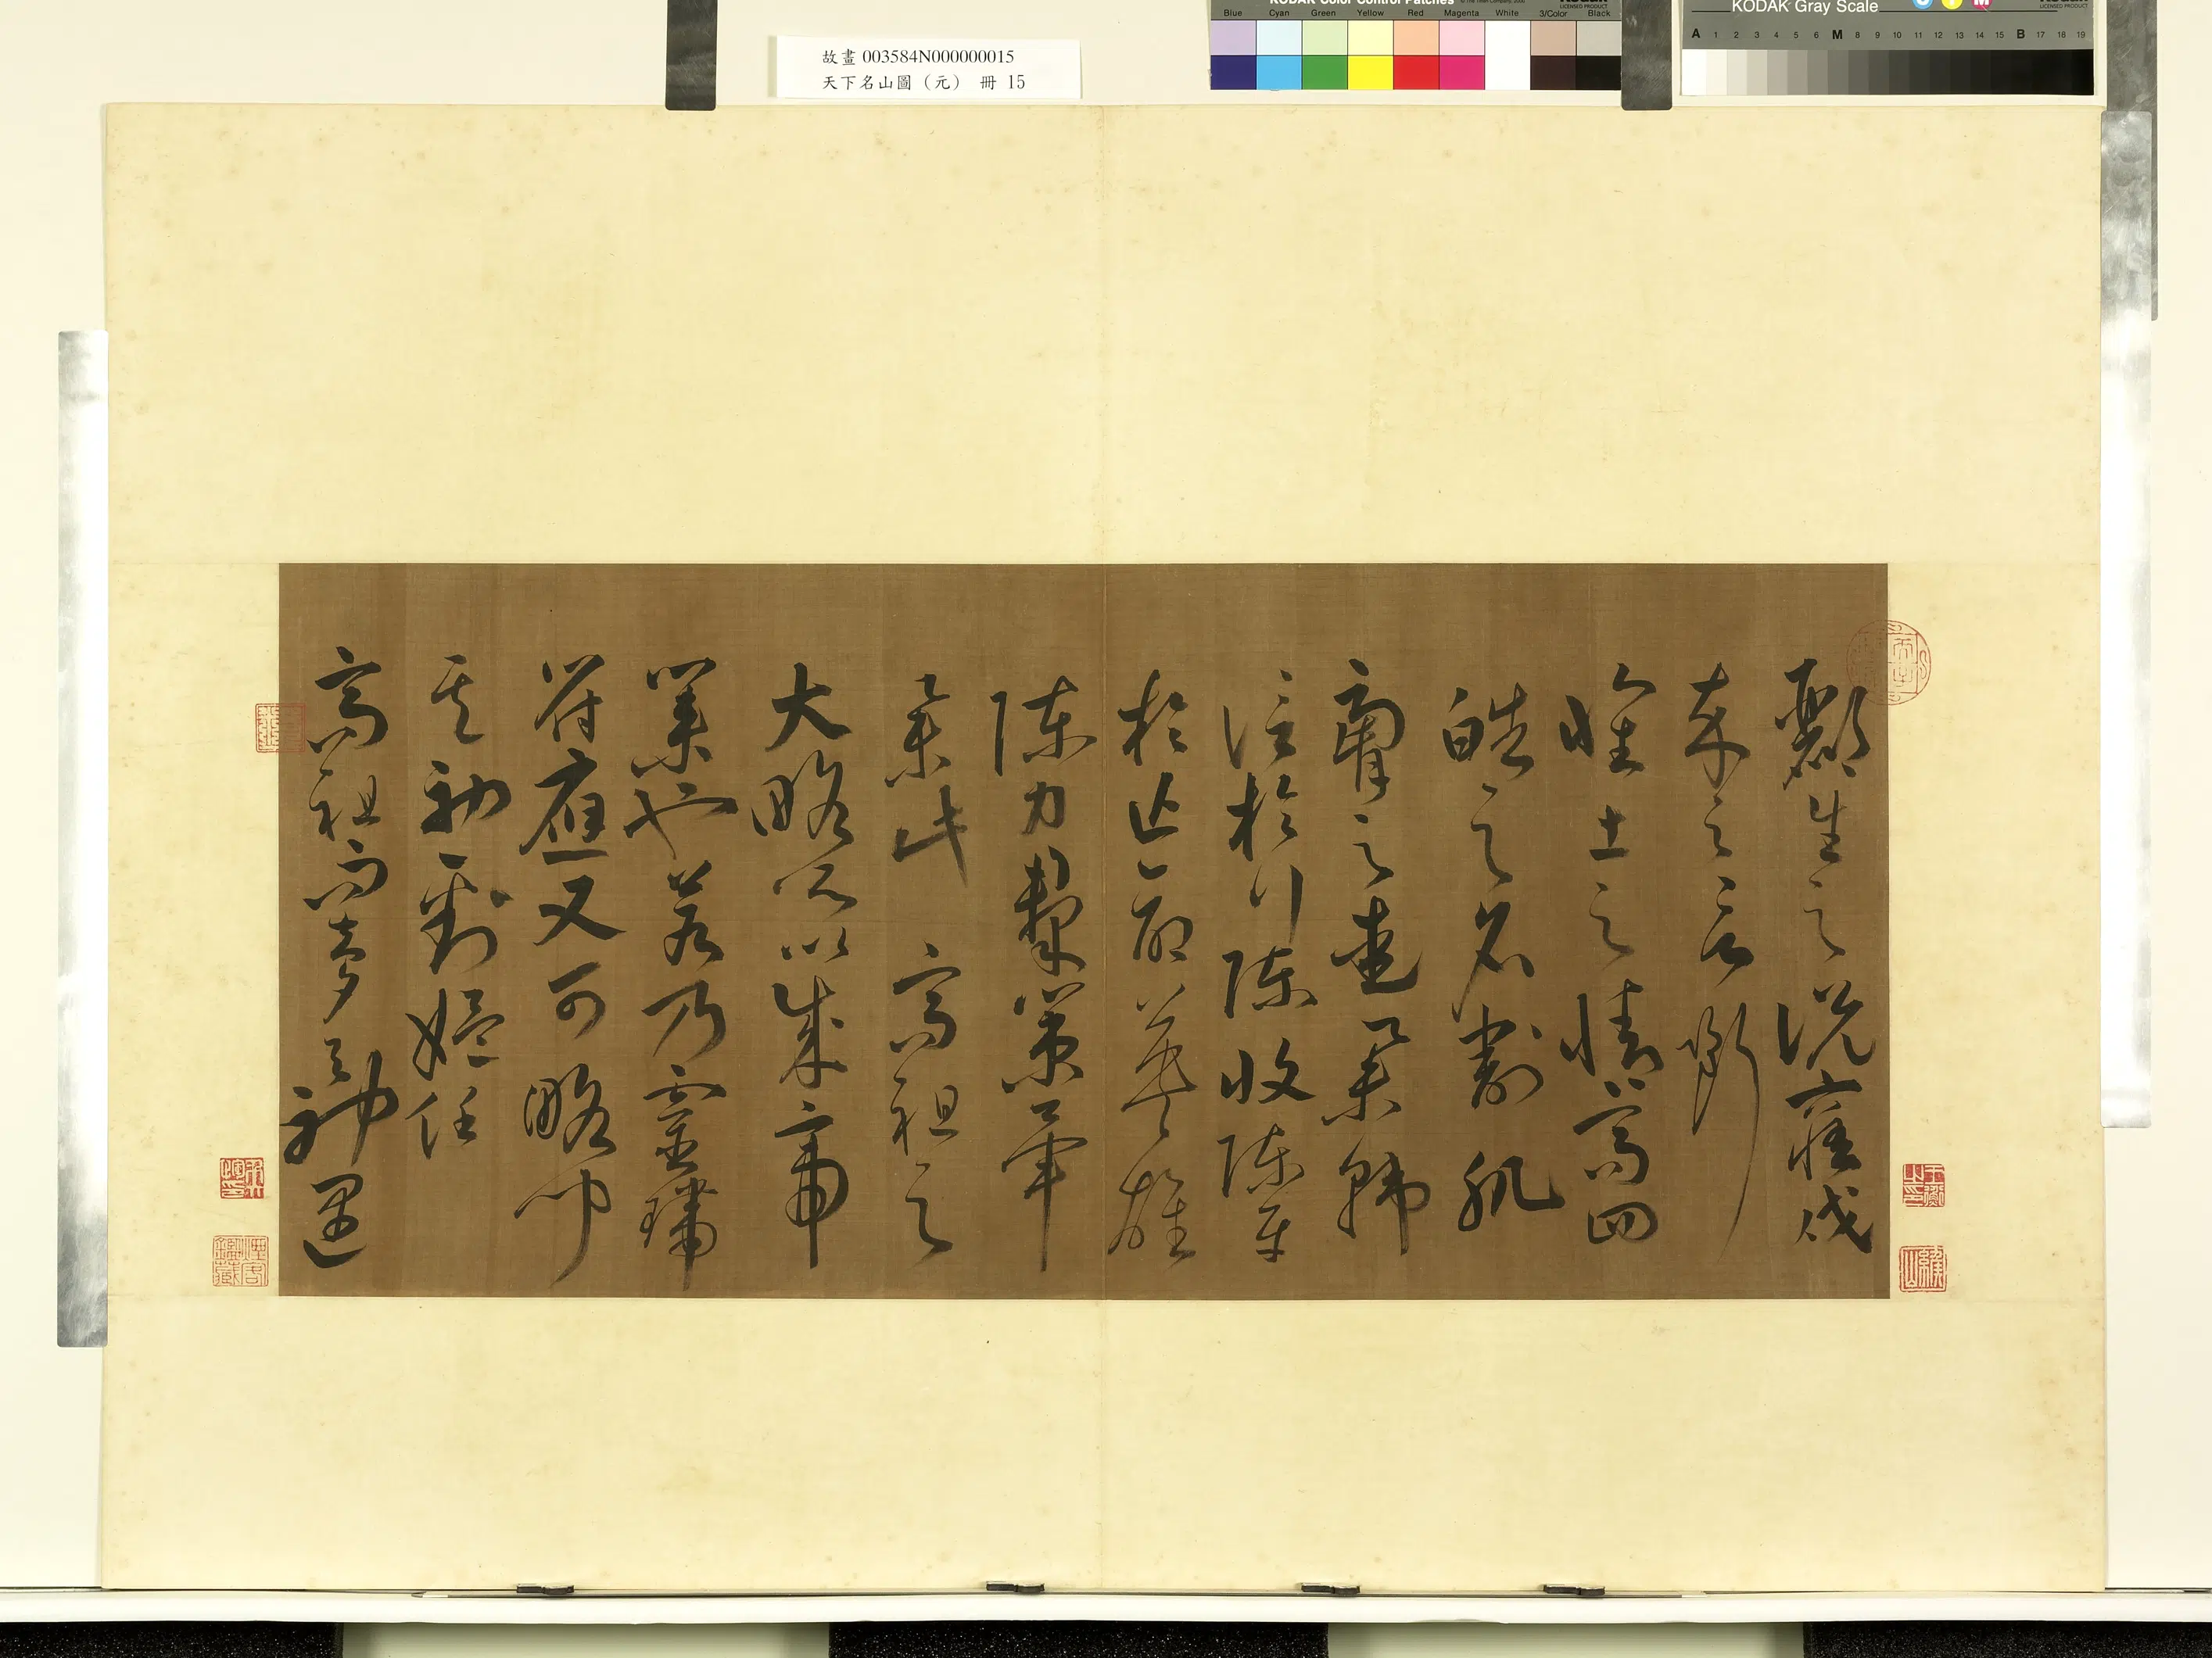 故畫 003584N000000015
天下名山圖（元） 冊 15
KODAK Color Control Patches
Blue Cyan Green Yellow Red Magenta White 3/Color Black
KODAK Gray Scale
A 1 2 3 4 5 6 M 8 9 10 11 12 13 14 15 B 17 18 19
酈生之說寤戍
卒之言斷
懷土之情高四
皓之名割肌
膚之愛舉韓
信於行陳收陳平
於亡命英雄
陳力羣策畢
舉此 高祖之
大略所以成帝
業也若乃靈瑞
符應又可略聞
矣初劉媼任
高祖而夢與神遇